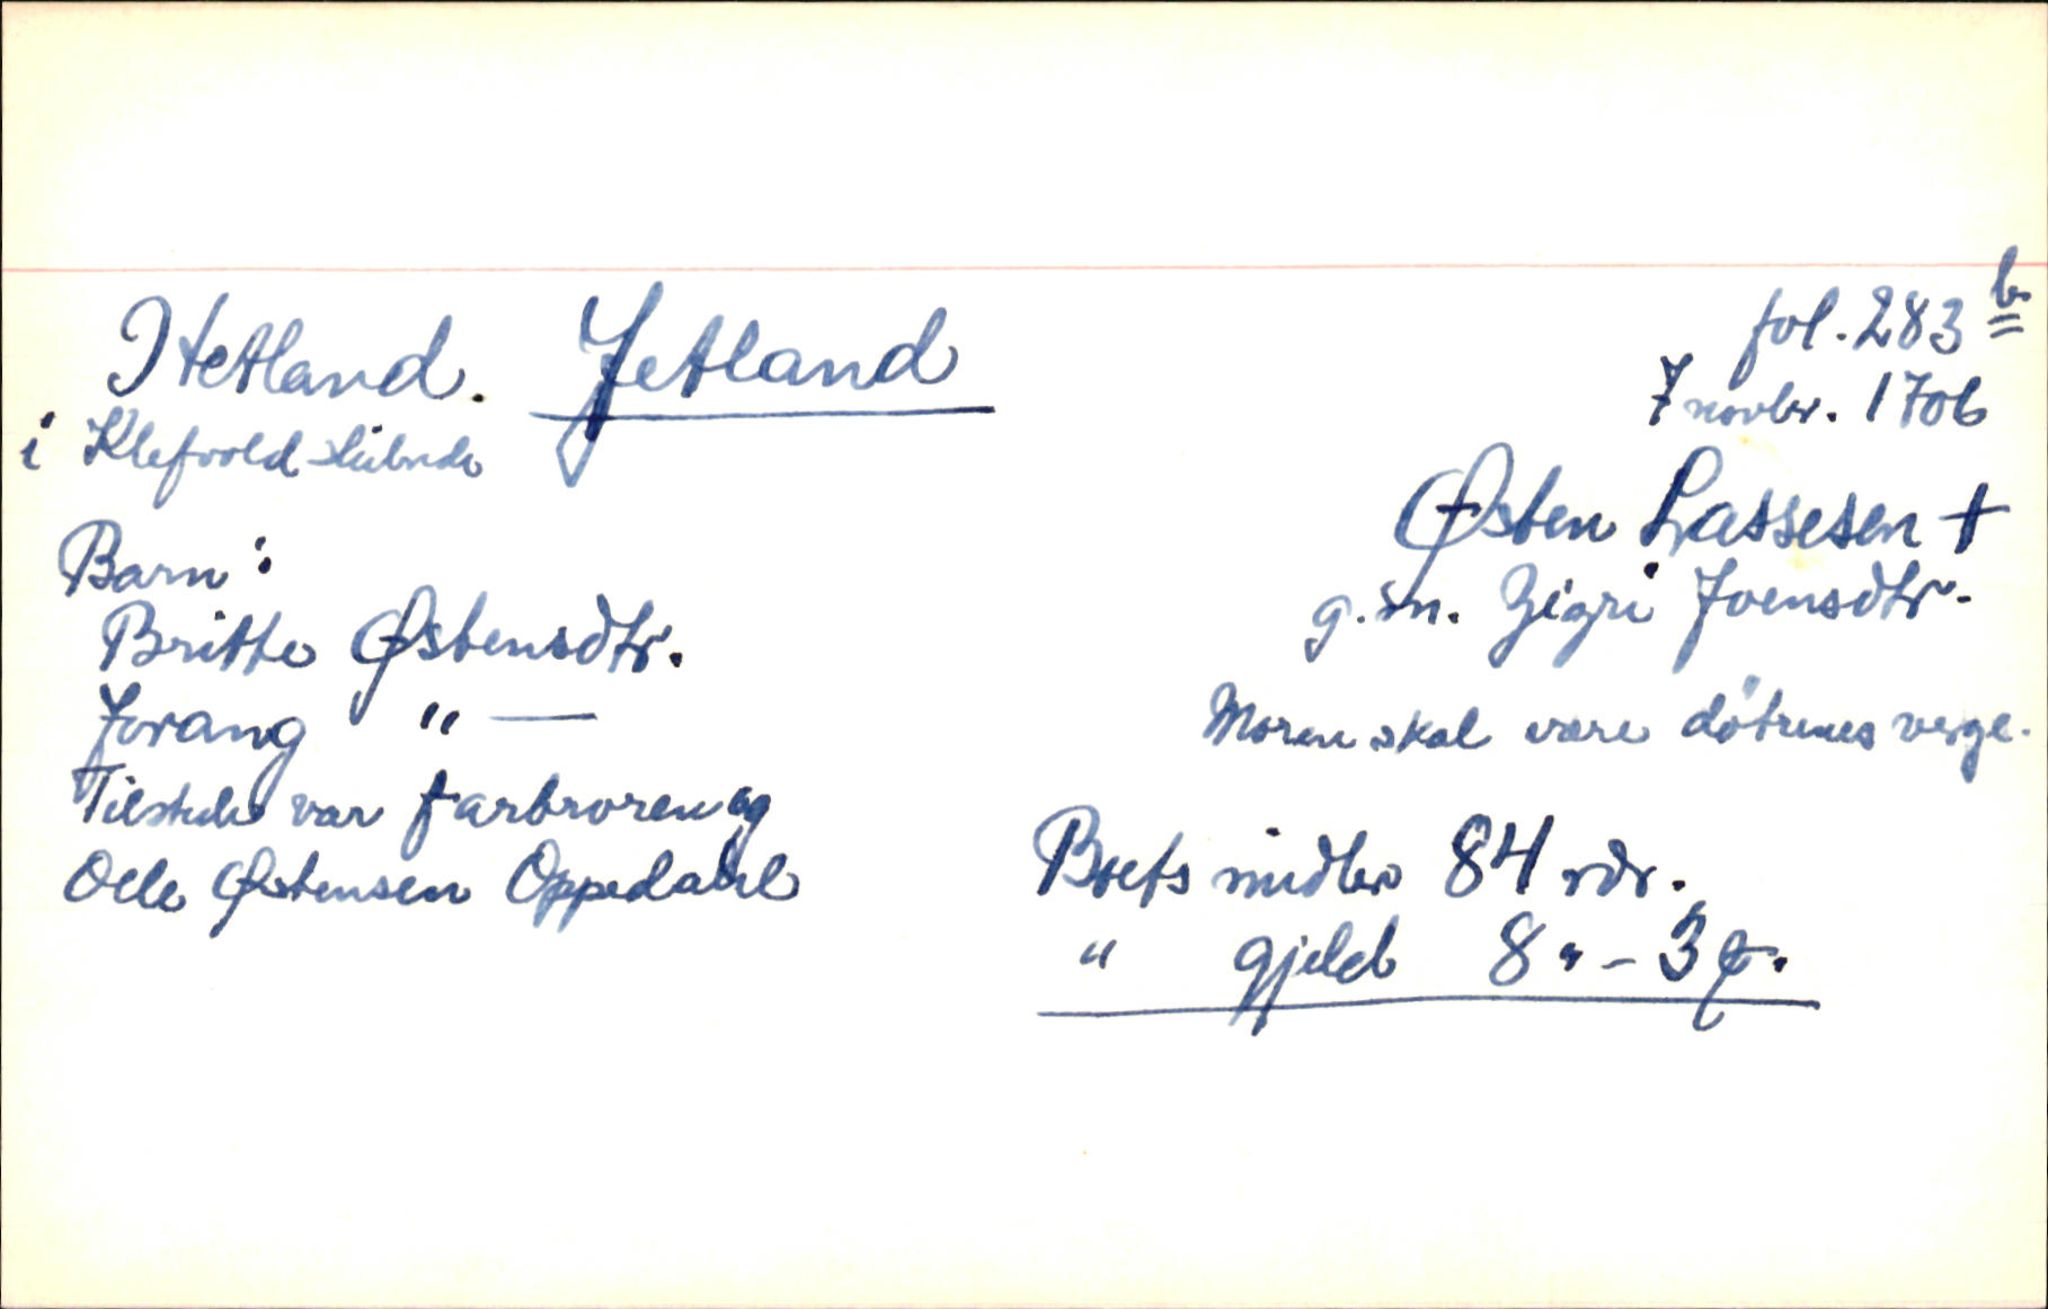 Hetland. Jetland
i Klefvold skibrede
fol. 283 b
7 novbr. 1706
Østen Lassesen †
g.m. Zigri Joensdtr.
Moren skal være døtrenes verge.
Barn:
Britte Østensdtr.
Jorang " —
Tilstede var farbroren og
Olle Østensen Oppedahl
Boets midler 84 rdr.
" gjeld 8 " - 3 ꝗ.